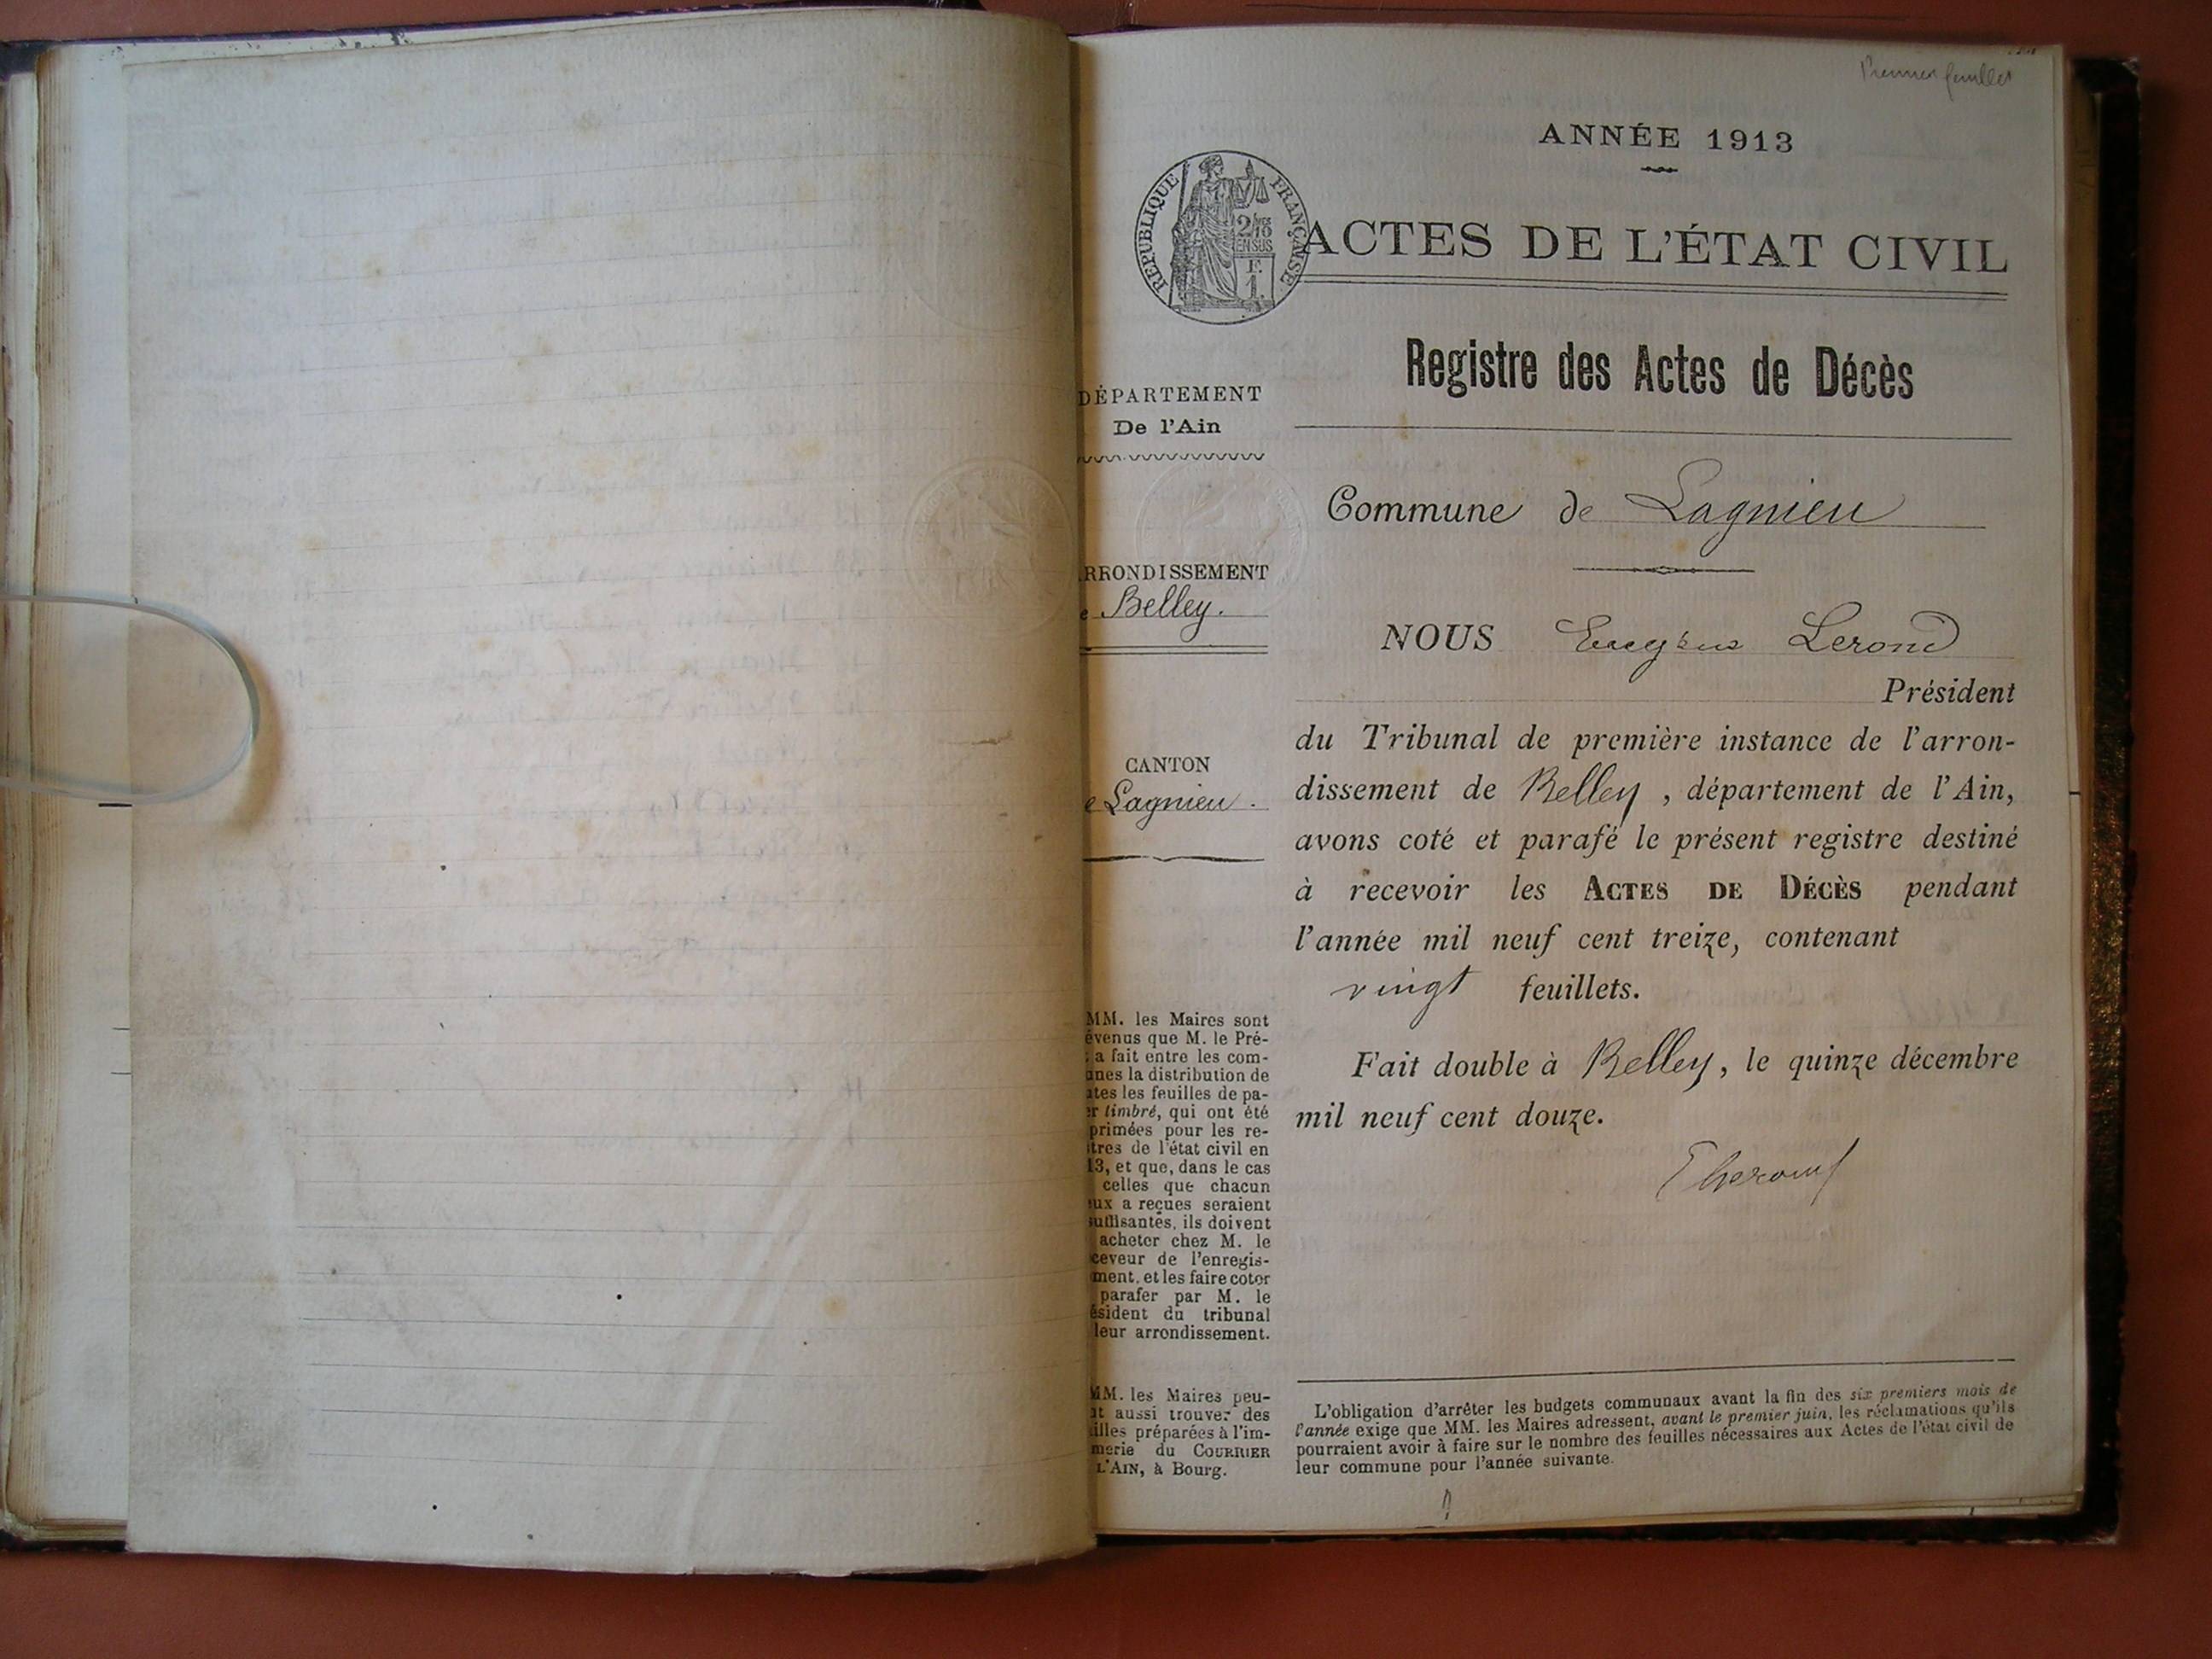 Premier feuillet
ANNÉE 1913
RÉPUBLIQUE FRANÇAISE
2/10
EN SUS
F.
1.
ACTES DE L'ÉTAT CIVIL
Registre des Actes de Décès
DÉPARTEMENT
De l'Ain
Commune de Lagnieu
RRONDISSEMENT
e Belley.
NOUS Eugène Lerond
Président
du Tribunal de première instance de l'arron-
dissement de Belley, département de l'Ain,
avons coté et parafé le présent registre destiné
à recevoir les ACTES DE DÉCÈS pendant
l'année mil neuf cent treize, contenant
vingt feuillets.
Fait double à Belley, le quinze décembre
mil neuf cent douze.
CANTON
e Lagnieu.
MM. les Maires sont
évenus que M. le Pré-
a fait entre les com-
unes la distribution de
tes les feuilles de pa-
er timbré, qui ont été
primées pour les re-
tres de l'état civil en
13, et que, dans le cas
celles que chacun
ux a reçues seraient
suffisantes, ils doivent
acheter chez M. le
ceveur de l'enregis-
ment, et les faire coter
parafer par M. le
ésident du tribunal
leur arrondissement.
MM. les Maires peu-
nt aussi trouver des
illes préparées à l'im-
merie du COURRIER
L'AIN, à Bourg.
L'obligation d'arrêter les budgets communaux avant la fin des six premiers mois de
l'année exige que MM. les Maires adressent, avant le premier juin, les réclamations qu'ils
pourraient avoir à faire sur le nombre des feuilles nécessaires aux Actes de l'état civil de
leur commune pour l'année suivante.